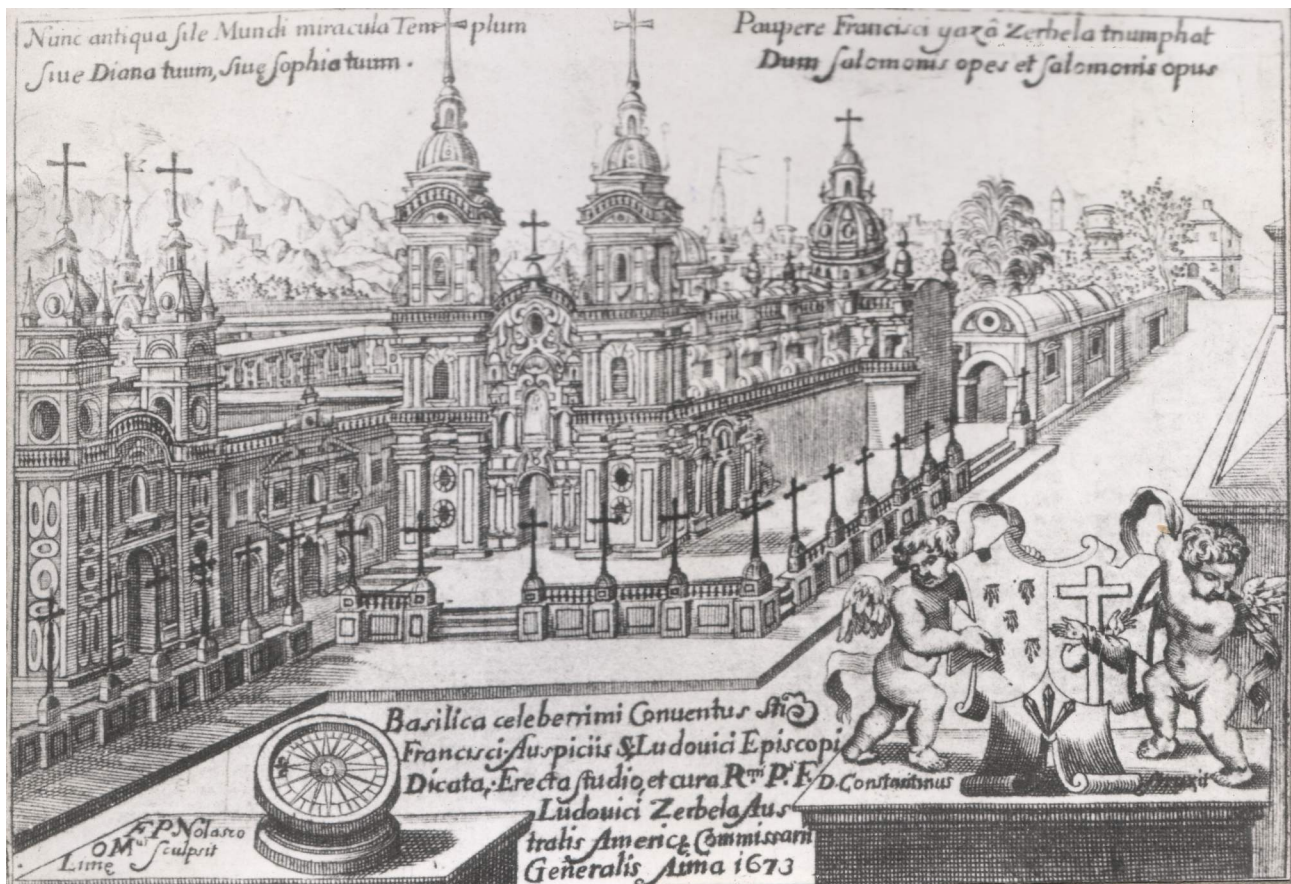 Nunc antiqua sile Mundi miracula Templum
siue Diana tuum, siue sophia tuum.
Paupere Francisci gazâ Zerbela triumphat
Dum salomonis opes et salomonis opus
Basilica celeberrimi Conuentus Sti
Francisci Auspiciis S. Ludouici Episcopi
Dicata, Erecta studio, et cura Rmi P. F.
Ludouici Zerbela Aus
tralis Americę Commissarii
Generalis Anna 1673
D. Constantinus
F P Nolasco
O M sculpsit
Limę